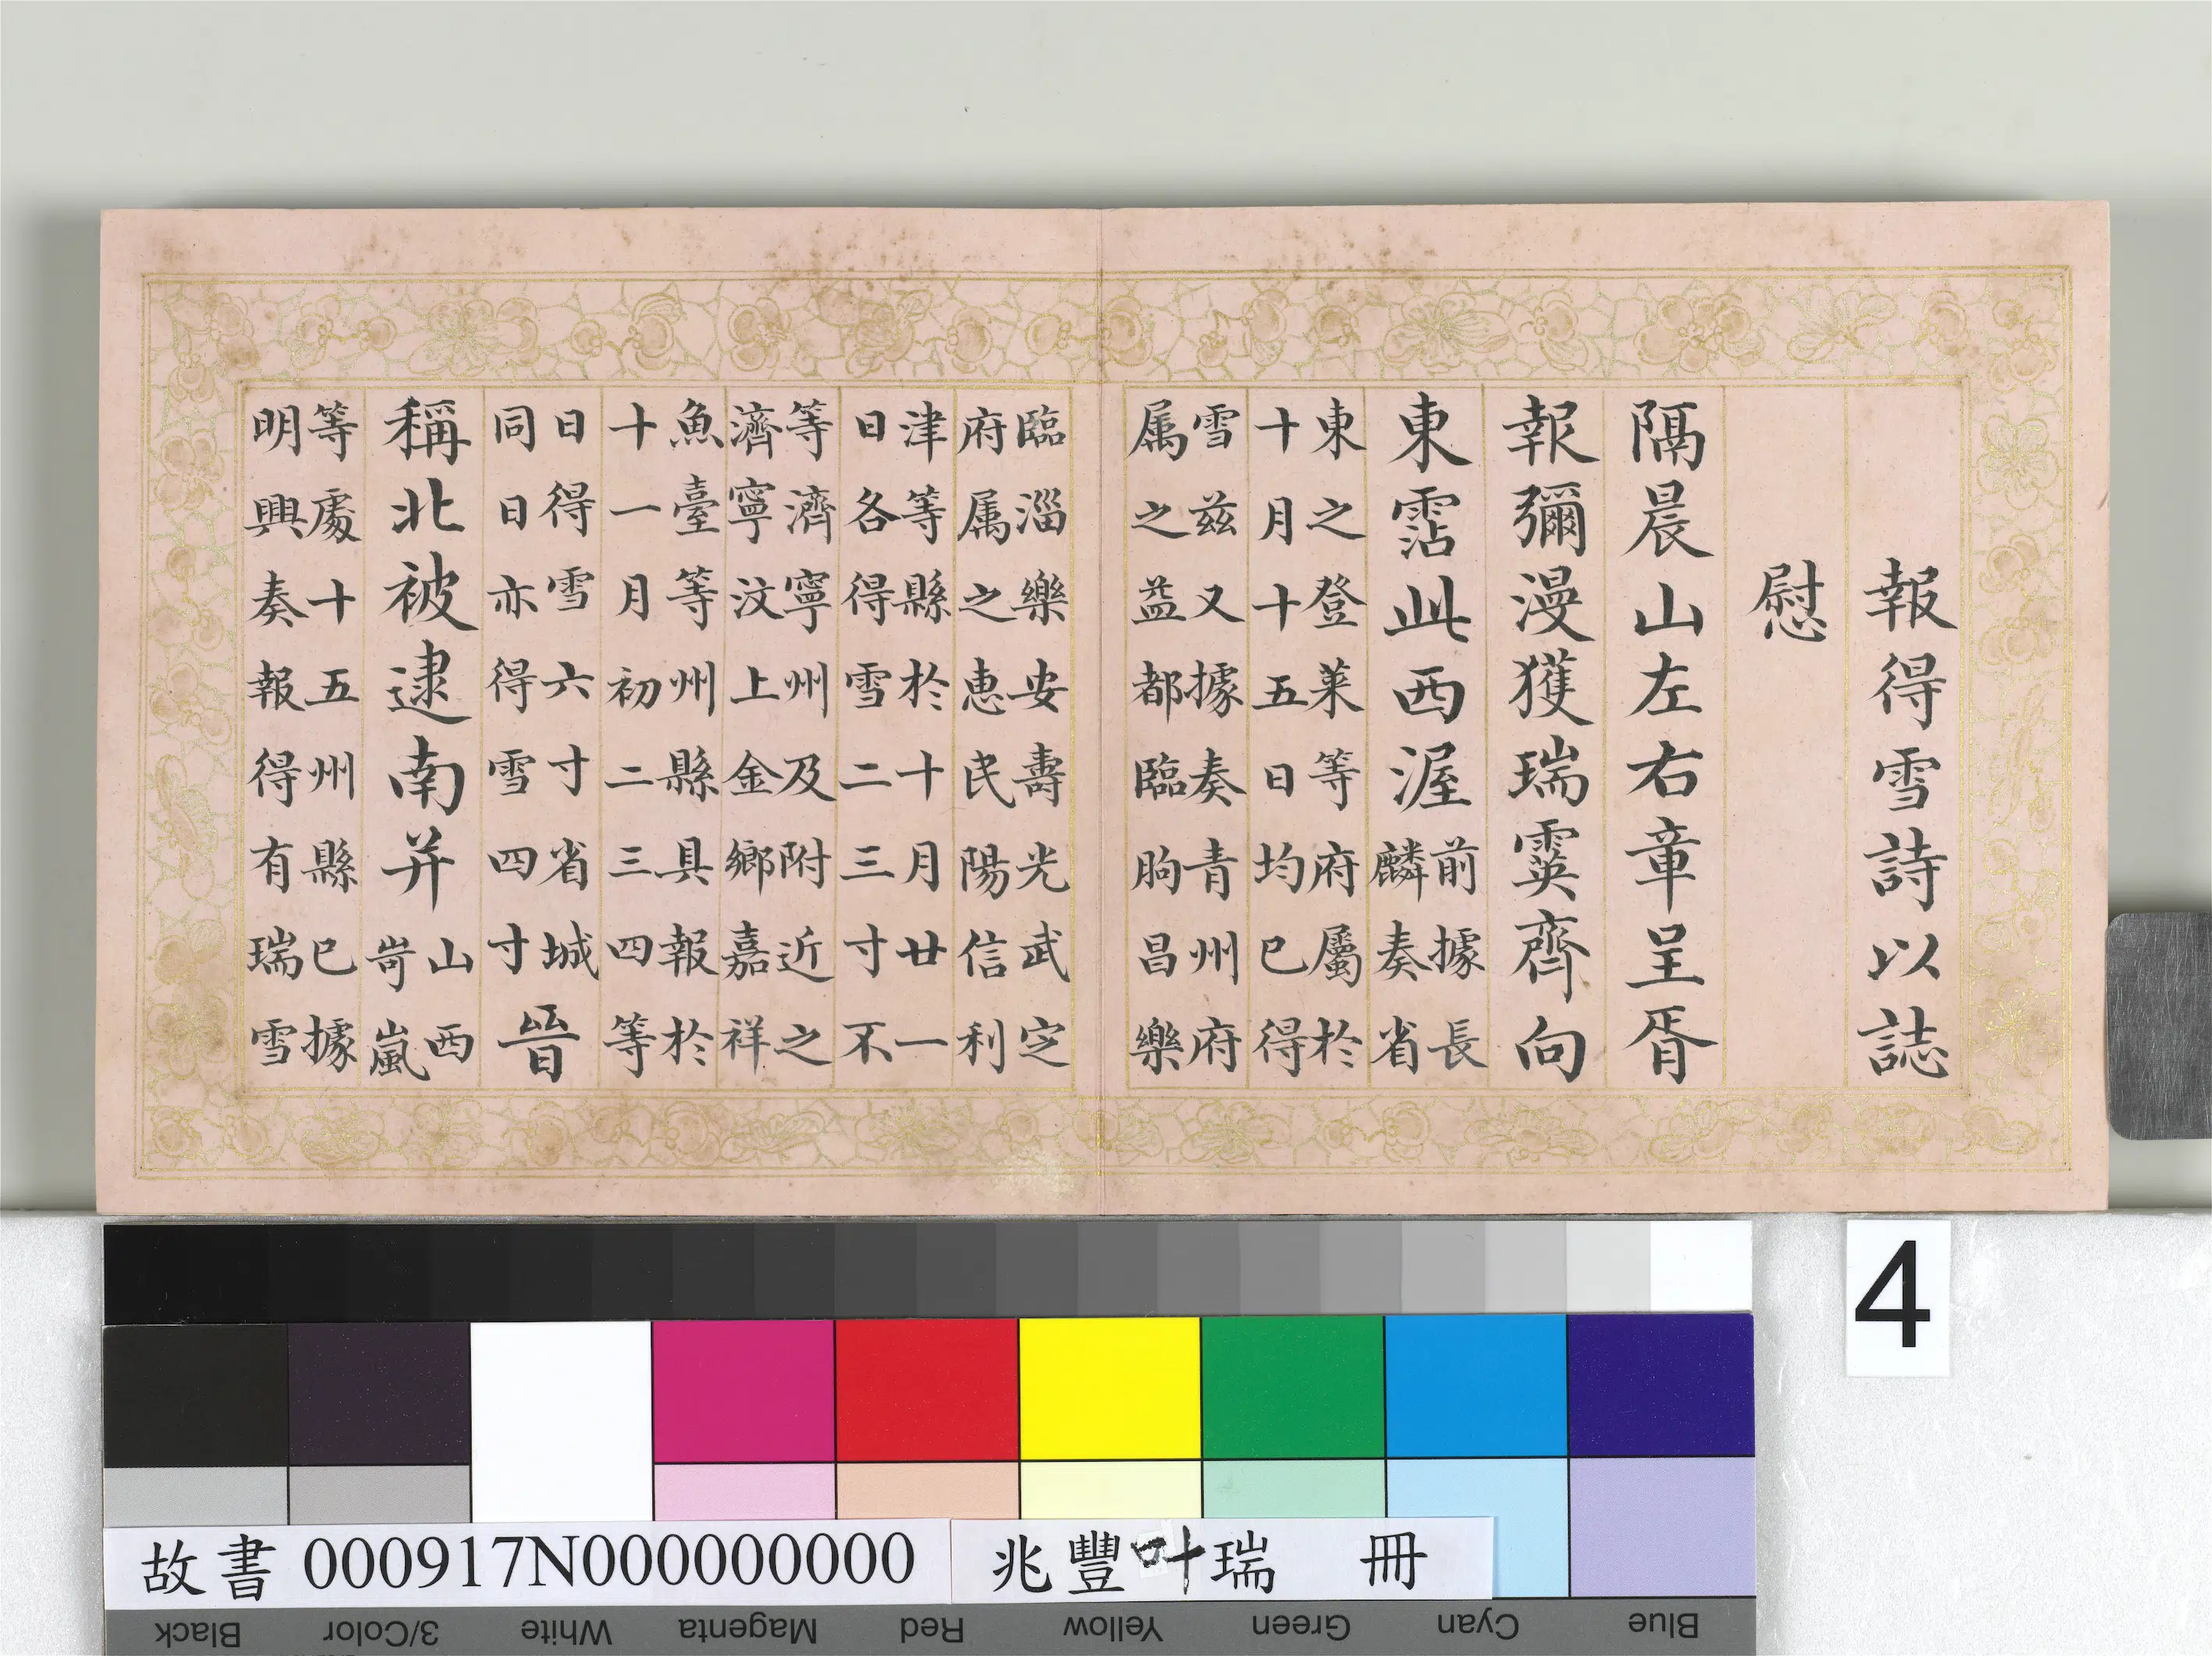 報得雪詩以誌
慰
隔晨山左右章呈胥
報彌漫獲瑞霙齊向
東霑此西渥前據長
麟奏省
東之登萊等府屬於
十月十五日均已得
雪茲又據奏青州府
属之益都臨朐昌樂
臨淄樂安壽光武定
府属之惠民陽信利
津等縣於十月廿一
日各得雪二三寸不
等濟寧州及附近之
濟寧汶上金鄉嘉祥
魚臺等州縣具報於
十一月初二三四等
日得雪六寸省城
同日亦得雪四寸晉
稱北被逮南并山西
岢嵐
等處十五州縣已據
明興奏報得有瑞雪
4
故書 000917N000000000
兆豐叶瑞 冊
Black 3/Color White Magenta Red Yellow Green Cyan Blue